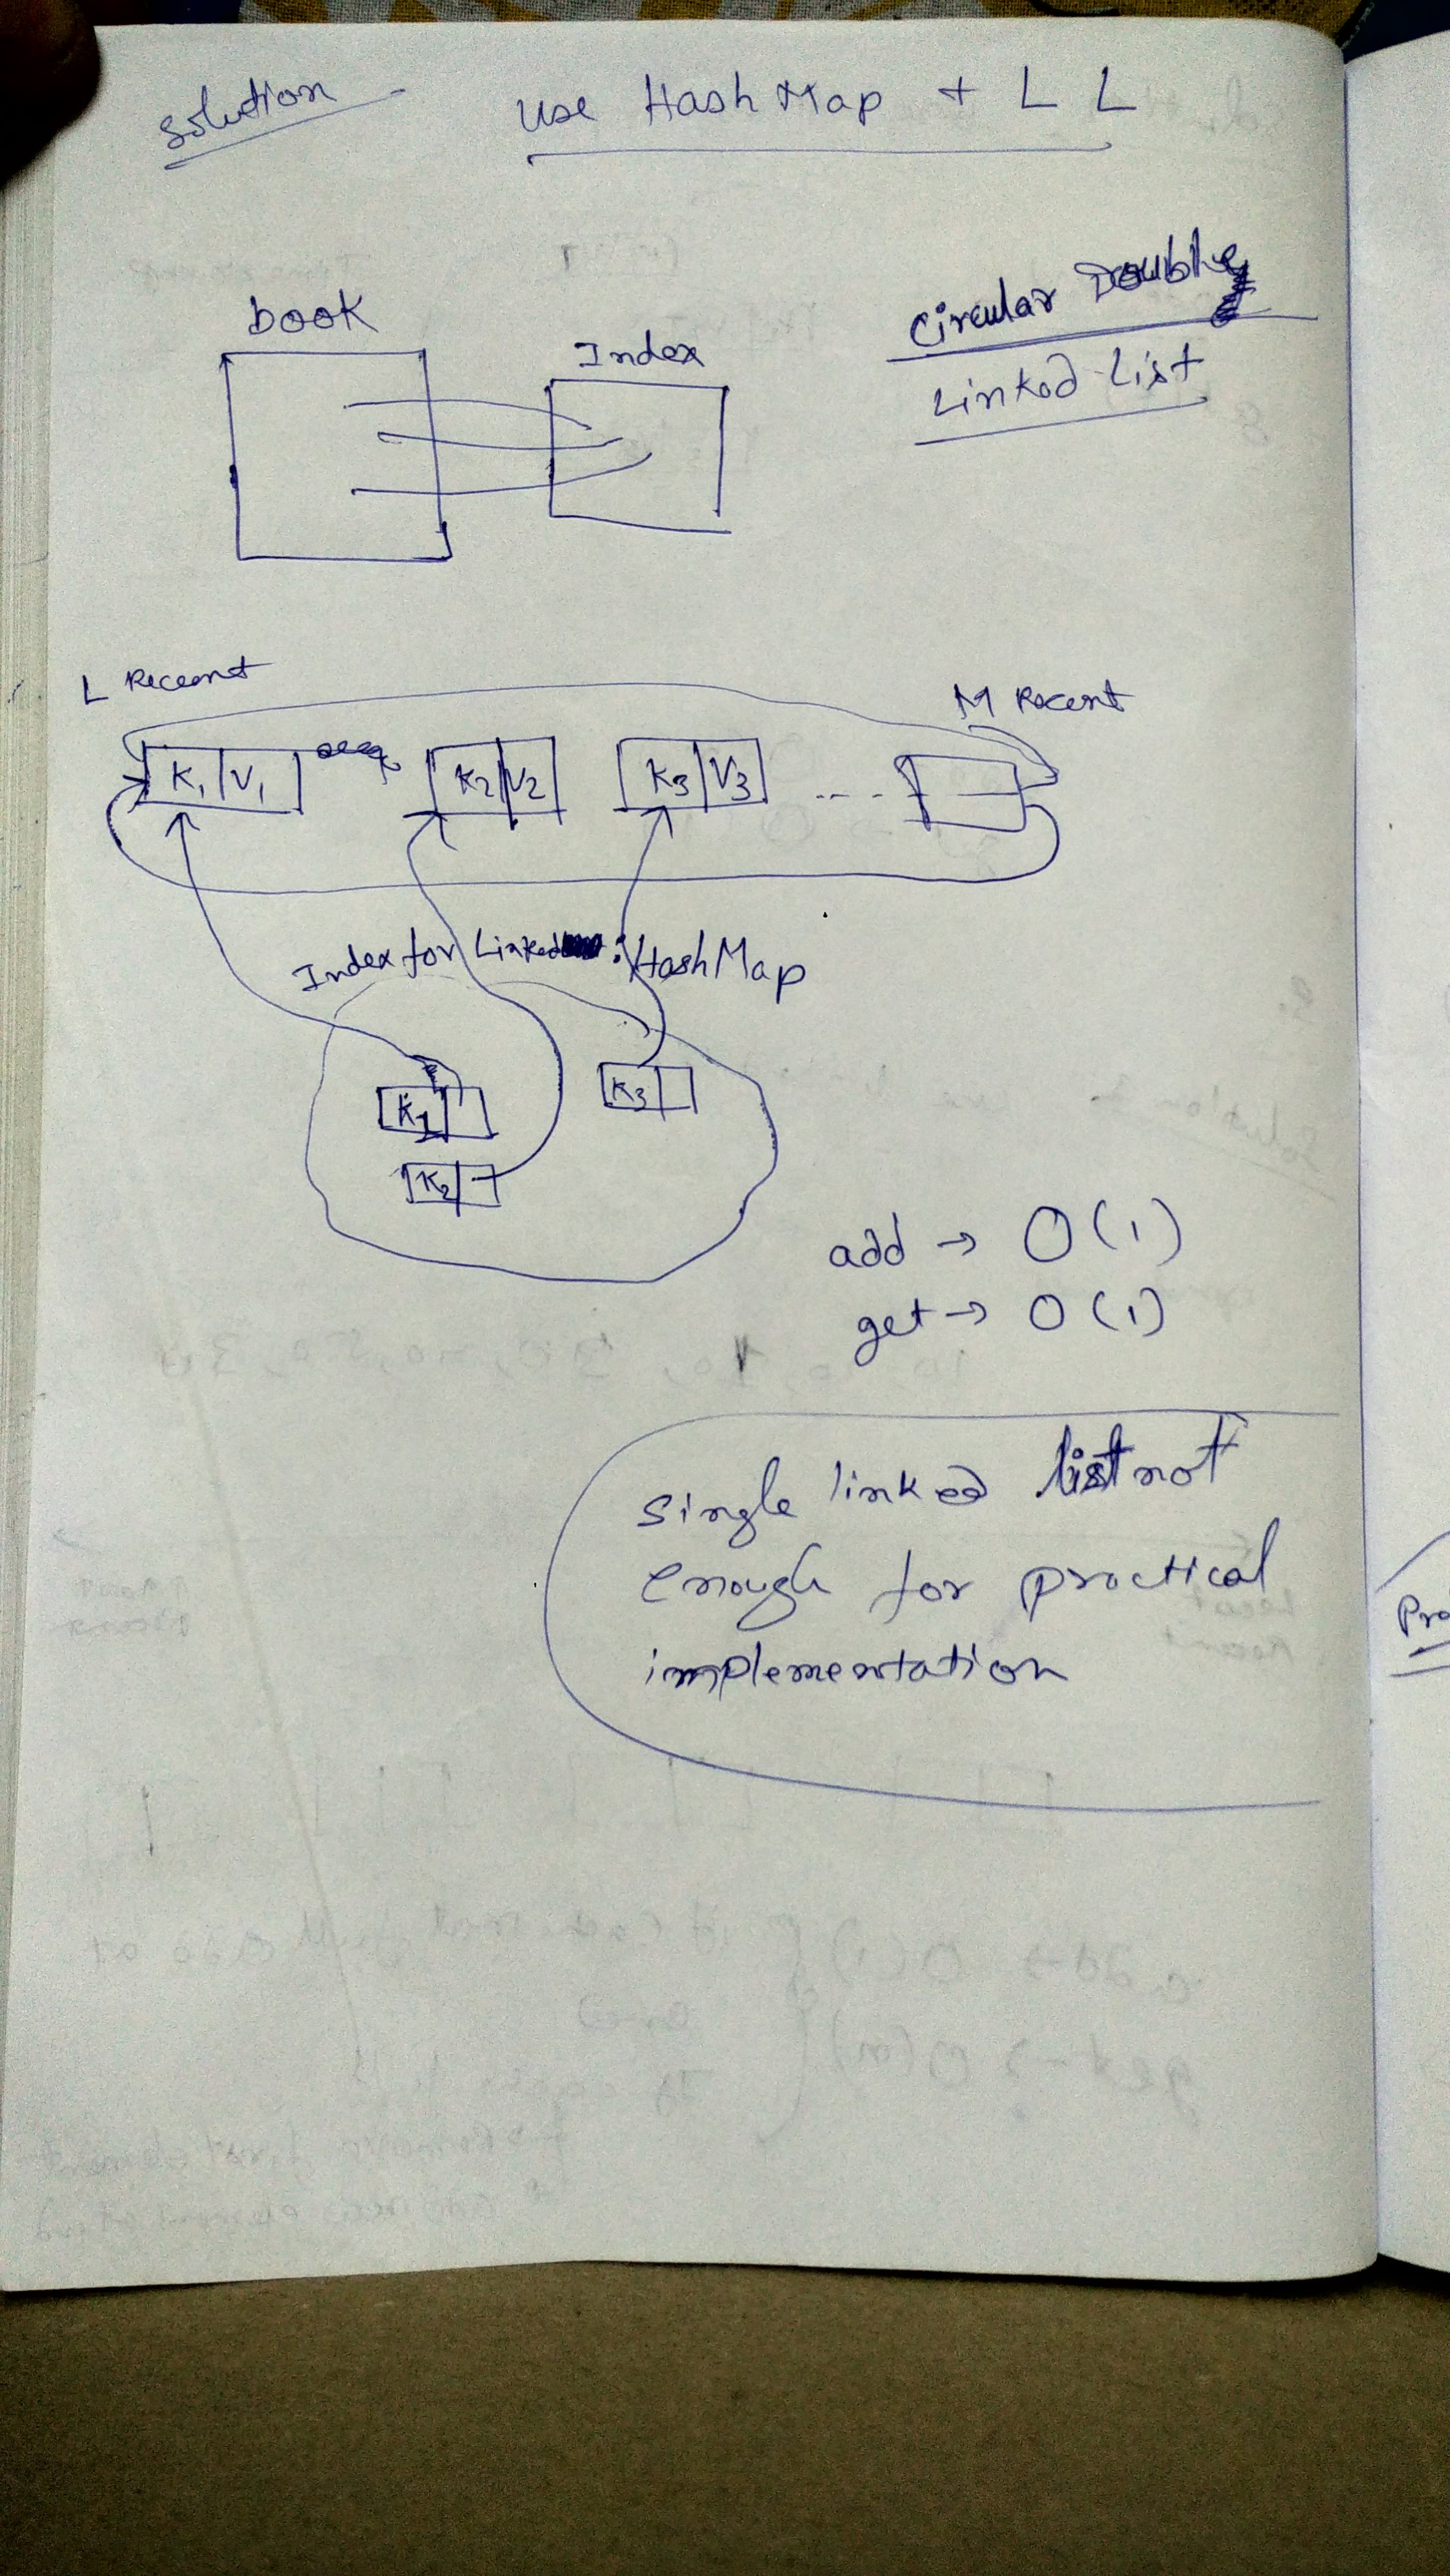 Solution -
Use HashMap + L L
book
Index
Circular Doubly
Linked List
L Receent
M Recent
K1 V1
K2 V2
K3 V3
....
Index for Linked : HashMap
K1
K3
K2
add → O(1)
get → O(1)
Single linked list not
enough for practical
implementation
Pro